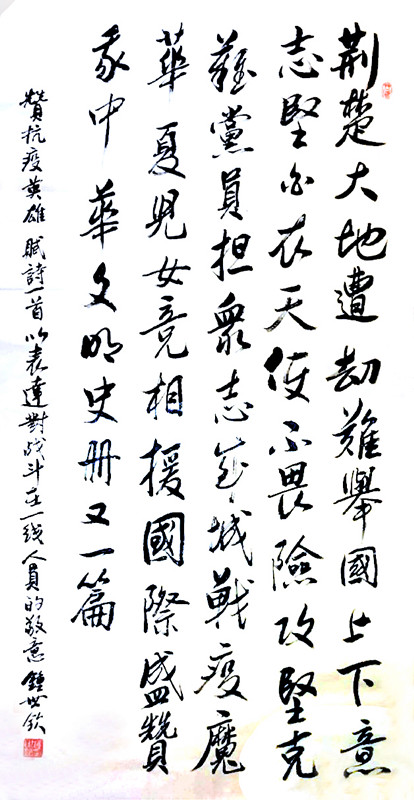 荆楚大地遭劫難舉國上下意
志堅白衣天使不畏險攻堅克
難黨員担眾志成城戰疫魔
華夏兒女竞相援國際盛贊
我中華文明史册又一篇
贊抗疫英雄 賦詩一首以表達對战斗在一线人員的敬意 鍾世欽